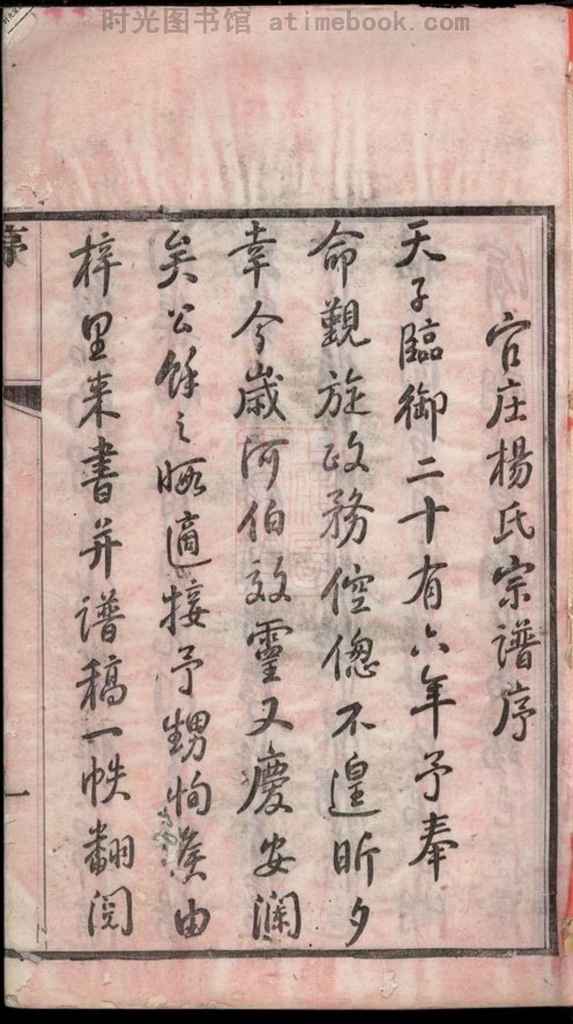 时光图书馆 atimebook.com
官庄楊氏宗谱序
天子臨御二十有六年予奉
命觐旋政務倥偬不遑昕夕
幸今歲河伯效靈又慶安瀾
矣公餘之暇適接予甥恂葊由
梓里来書并谱稿一帙翻阅
序
一